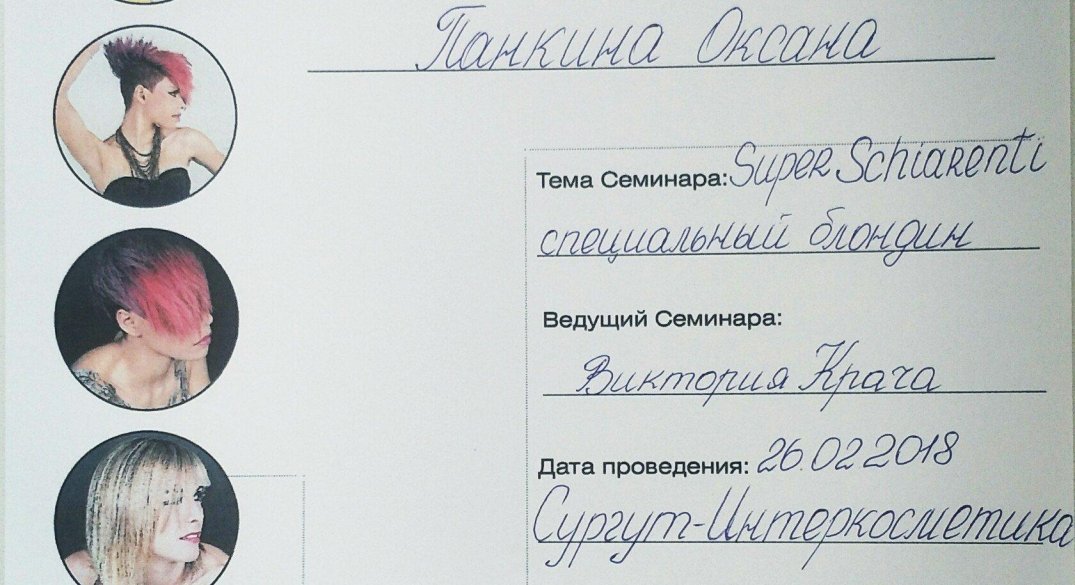 Панкина Оксана
Тема Семинара: Super Schiarenti
специальный блондин
Ведущий Семинара:
Виктория Крача
Дата проведения: 26.02 2018
Сургут-Интеркосметика